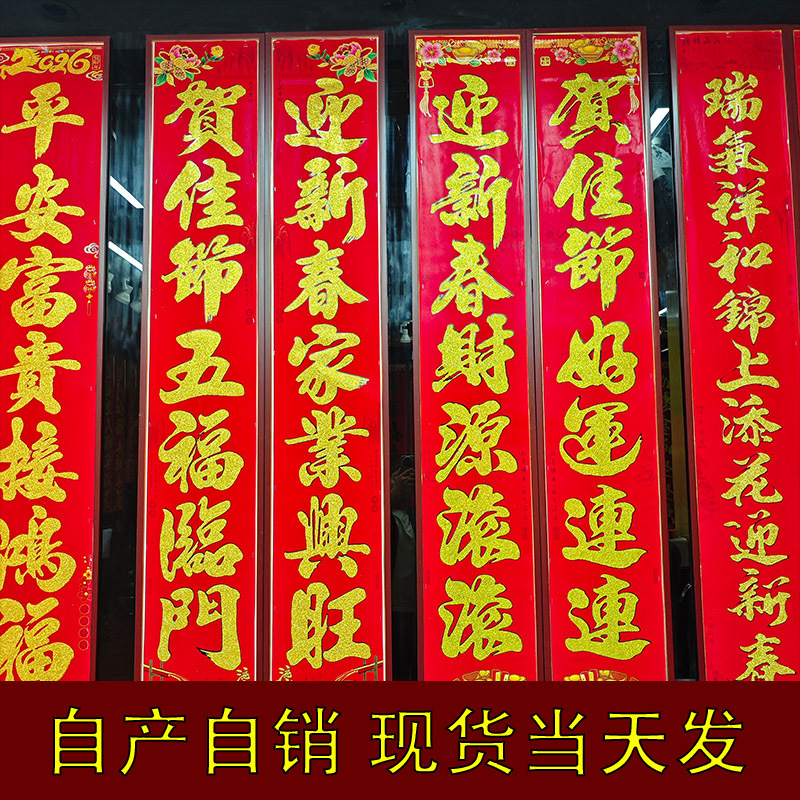 2026
平安富貴接鴻福
賀佳節五福臨門
迎新春家業興旺
迎新春財源滾滾
賀佳節好運連連
瑞氣祥和錦上添花迎新春
自产自销 现货当天发